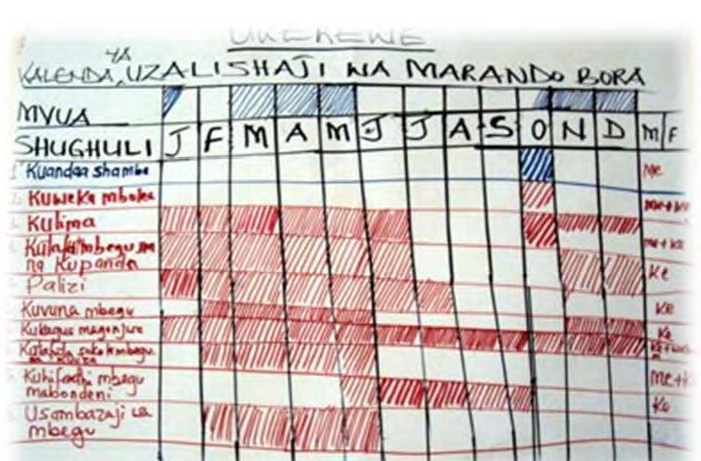 UKEREWE
KALENDA YA UZALISHAJI WA MARANDO BORA
MVUA
SHUGHULI J F M A M J J A S O N D M/F
Kuandaa shamba Me
Kuweka mbolea me+ke
Kulima me+ke
Kutafuta mbegu
na Kupanda Ke
Palizi
Kuvuna mbegu Ke
Kukagua magonjwa Ke
Kutafuta soko mbegu
Kuhifadhi mbegu me+k
mabondeni
Usambazaji wa Ke
mbegu